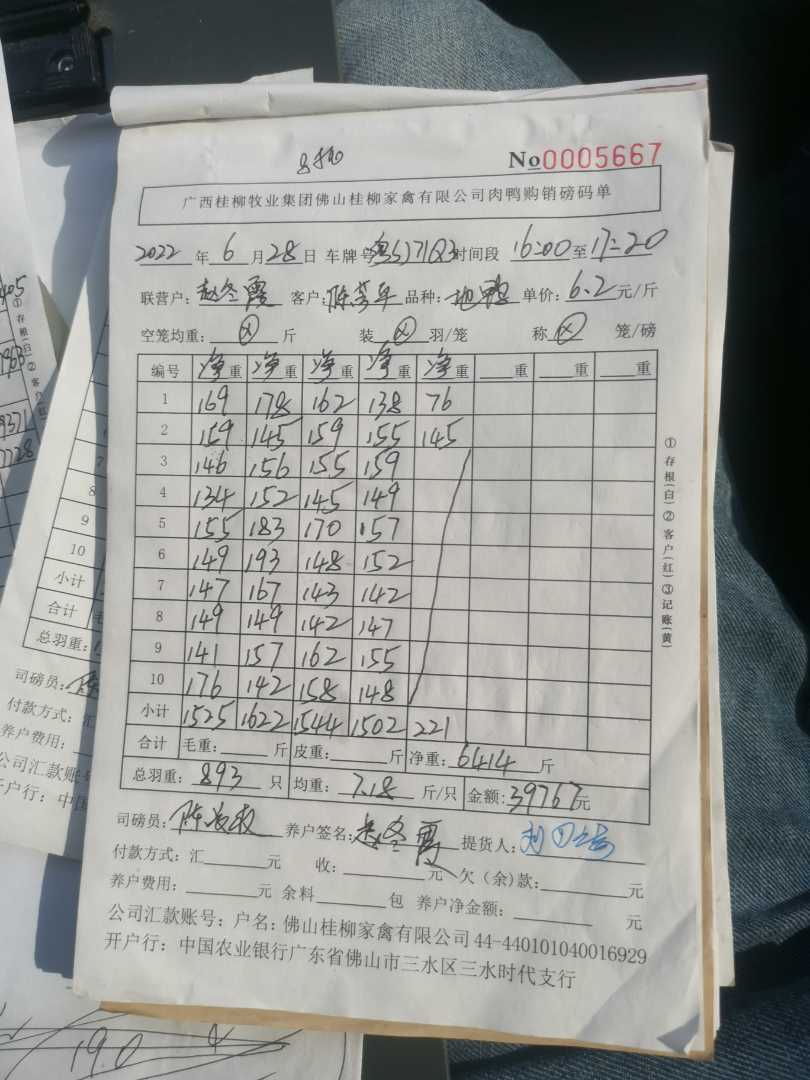 No0005667
广西桂柳牧业集团佛山桂柳家禽有限公司肉鸭购销磅码单
2022年6月28日 车牌号粤SJ71Q3时间段16:00至17:20
联营户:赵冬霞 客户:陈芳年 品种:地鸭 单价:6.2元/斤
空笼均重:斤 装羽/笼 称笼/磅
编号 净重 净重 净重 净重 净重 重 重 重
1 169 178 162 138 76
2 159 145 159 155 145
3 146 156 155 159
4 134 152 145 149
5 155 183 170 157
6 149 193 148 152
7 147 167 143 142
8 149 149 142 147
9 141 157 162 155
10 176 142 158 148
小计 1525 1622 1544 1502 221
合计 毛重:斤 皮重:斤 净重:6414斤
总羽重:893只 均重:7.18斤/只 金额:39767元
司磅员: 养户签名:赵冬霞 提货人:
付款方式:汇元 收:元 欠(余)款:元
养户费用:元 余料包 养户净金额:元
公司汇款账号:户名:佛山桂柳家禽有限公司44-440101040016929
开户行:中国农业银行广东省佛山市三水区三水时代支行
①存根(白)②客户(红)③记账(黄)
①存根(白)②客户(红
8
9
10
小计
合计
总羽重:
司磅员:
付款方式:汇
养户费用:
公司汇款账号
开户行:中国
190